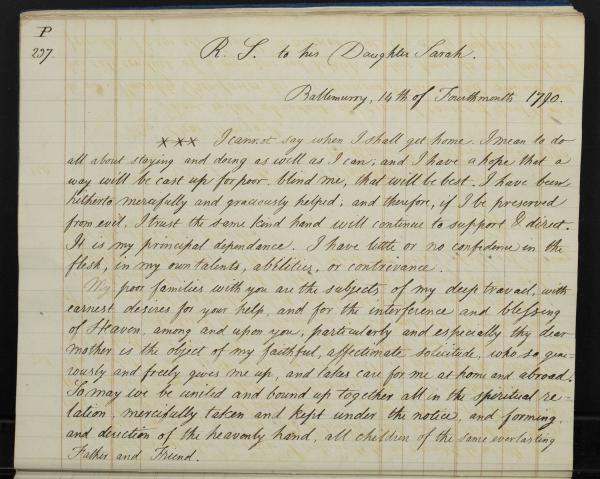 P
237.
R. S. to his Daughter Sarah.
Ballimurry, 14th of Fourthmonth 1790.
x x x I cannot say when I shall get home. I mean to do
all about staying and doing as well as I can; and I have a hope that a
way will be cast up for poor blind me, that will be best. I have been
hitherto mercifully and graciously helped; and therefore, if I be preserved
from evil, I trust the same kind hand will continue to support & direct.
It is my principal dependance. I have little or no confidence in the
flesh, in my own talents, abilities, or contrivance.
My poor families with you are the subjects of my deep travail, with
earnest desires for your help, and for the interference and blessing
of Heaven, among and upon you; particularly and especially thy dear
mother is the object of my faithful, affectionate solicitude, who so gene-
rously and freely gives me up, and takes care for me at home and abroad.
So may we be united and bound up together all in the spiritual re-
lation, mercifully taken and kept under the notice, and forming,
and direction of the heavenly hand, all children of the same everlasting
Father and Friend.